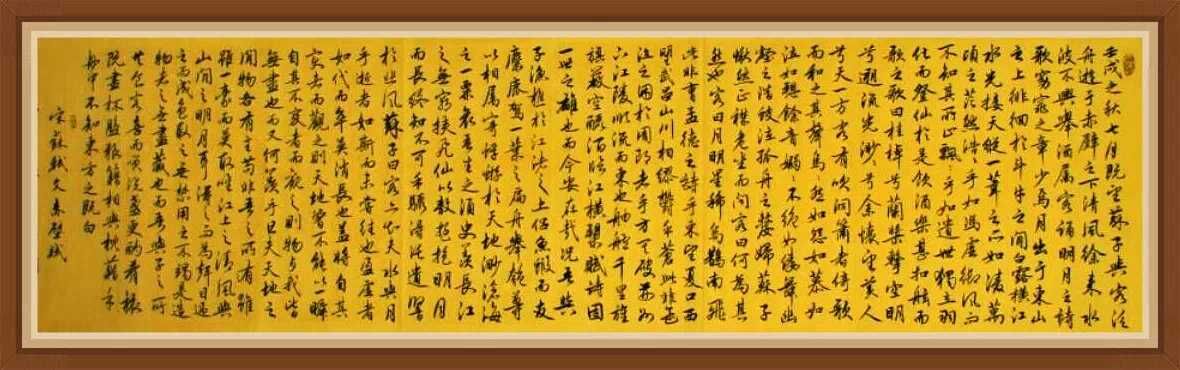 壬戌之秋七月既望蘇子與客泛
舟遊于赤壁之下清風徐來水
波不興舉酒屬客誦明月之詩
歌窈窕之章少焉月出于東山
之上徘徊於斗牛之間白露橫江
水光接天縱一葦之所如凌萬
頃之茫然浩浩乎如馮虛御風而
不知其所止飄飄乎如遺世獨立羽
化而登仙於是飲酒樂甚扣舷而
歌之歌曰桂棹兮蘭槳擊空明
兮溯流光渺渺兮余懷望美人
兮天一方客有吹洞簫者倚歌
而和之其聲嗚嗚然如怨如慕如
泣如訴餘音嫋嫋不絕如縷舞幽
壑之潛蛟泣孤舟之嫠婦蘇子
愀然正襟危坐而問客曰何為其
然也客曰月明星稀烏鵲南飛
此非曹孟德之詩乎東望夏口西
望武昌山川相繆鬱乎蒼蒼此非孟
德之困於周郎者乎方其破荊州
下江陵順流而東也舳艫千里旌
旗蔽空釃酒臨江橫槊賦詩固
一世之雄也而今安在哉況吾與
子漁樵於江渚之上侶魚蝦而友
麋鹿駕一葉之扁舟舉匏尊
以相屬寄蜉蝣於天地渺滄海
之一粟哀吾生之須臾羨長江
之無窮挾飛仙以遨遊抱明月
而長終知不可乎驟得託遺響
於悲風蘇子曰客亦知夫水與月
乎逝者如斯而未嘗往也盈虛者
如代而卒莫消長也蓋將自其
變者而觀之則天地曾不能以瞬
自其不變者而觀之則物與我皆
無盡也而又何羨乎且夫天地之
間物各有主苟非吾之所有雖
雖一毫而莫取唯江上之清風與
山間之明月耳得之而為聲目遇
之而成色取之無禁用之不竭是造
物者之無盡藏也而吾與子之所
共食客喜而笑洗盞更酌肴核
既盡杯盤狼藉相與枕藉乎
舟中不知東方之既白
宋蘇軾文赤壁賦